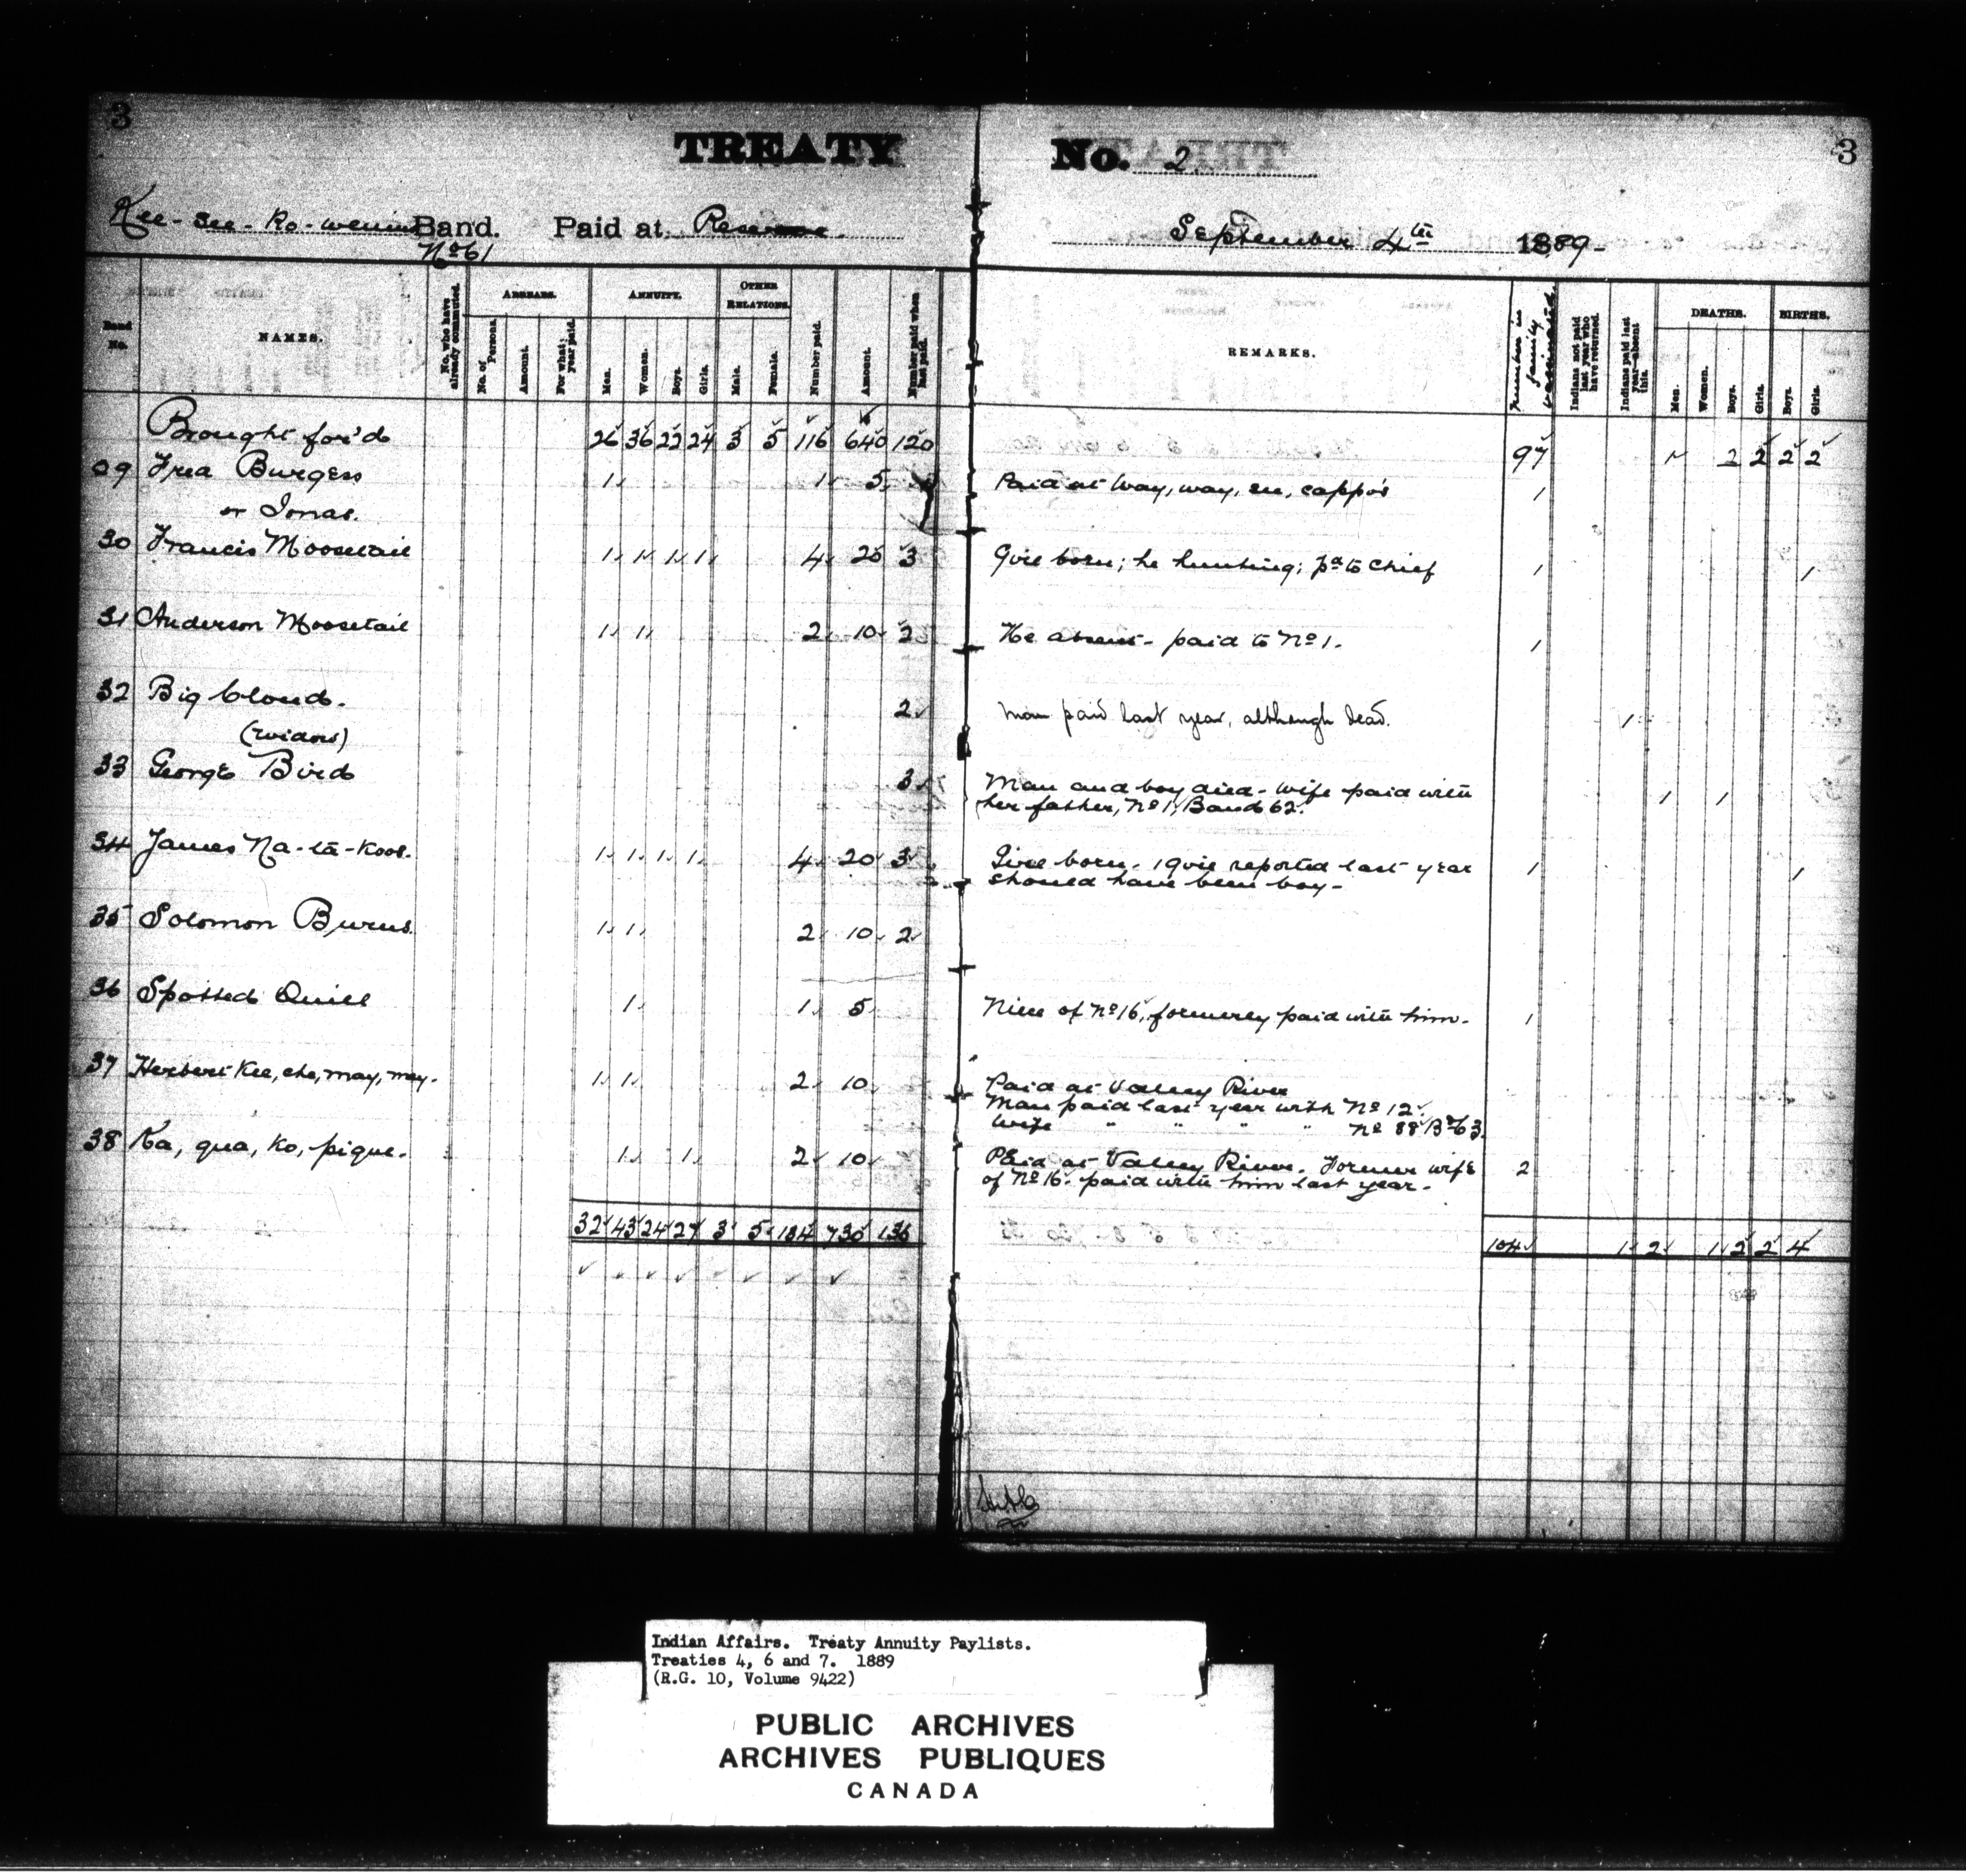 3
TREATY No. 2
3
Kee-See-Ko-wenin Band. Paid at Reserve. September 4th 1889-
No 61
Band No.
NAMES.
No. who have already commuted.
ARREARS.
No. of Persons.
Amount.
For what year paid.
ANNUITY.
Men.
Women.
Boys.
Girls.
OTHER RELATIONS.
Male.
Female.
Number paid.
Amount.
Number paid when last paid.
REMARKS.
Number in family vaccinated.
Indians not paid last year who have returned.
Indians paid last year—absent this.
DEATHS.
Men.
Women.
Boys.
Girls.
BIRTHS.
Boys.
Girls.
Brought for'd 26 36 22 24 3 5 116 640 120 97 1 2 2 2 2
29 Fred Burgess 1 1 5 Paid at Way, way, see, cappo's 1
or Jonas.
30 Francis Moosetail 1 1 1 1 4 20 3 Girl born; he hunting; pd to Chief 1 1
31 Anderson Moosetail 1 1 2 10 2 He absent - paid to No 1. 1
32 Big Cloud. 2 Man paid last year, although dead. 1
(widow)
33 George Bird 3 Man and boy died - wife paid with
her father, No 1, Band 62. 1 1
34 James Na-ta-koos. 1 1 1 1 4 20 3 Girl born. 1 girl reported last year 1 1
should have been boy-
35 Solomon Burns. 1 1 2 10 2
36 Spotted Quill 1 1 5 Niece of No 16, formerly paid with him. 1
37 Herbert Kee, che, may, may. 1 1 2 10 Paid at Valley River
Man paid last year with No 12.
Wife " " " " No 88 Bd 63.
38 Ka, qua, ko, pique. 1 1 2 10 Paid at Valley River. Former wife 2
of No 16. paid with him last year.
32 43 24 27 3 5 134 730 136 104 1 2 1 2 2 4
Indian Affairs. Treaty Annuity Paylists.
Treaties 4, 6 and 7. 1889
(R.G. 10, Volume 9422)
PUBLIC ARCHIVES
ARCHIVES PUBLIQUES
CANADA